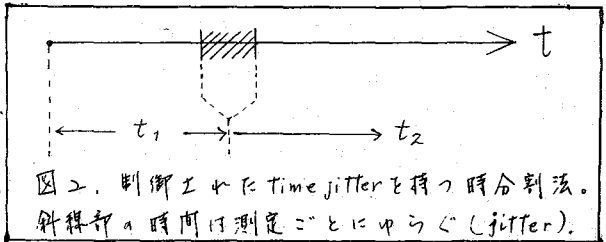 t
t₁ t₂
図2. 制御されたtime jitterを持つ時分割法。
斜線部の時間は測定ごとにゆらぐ(jitter).